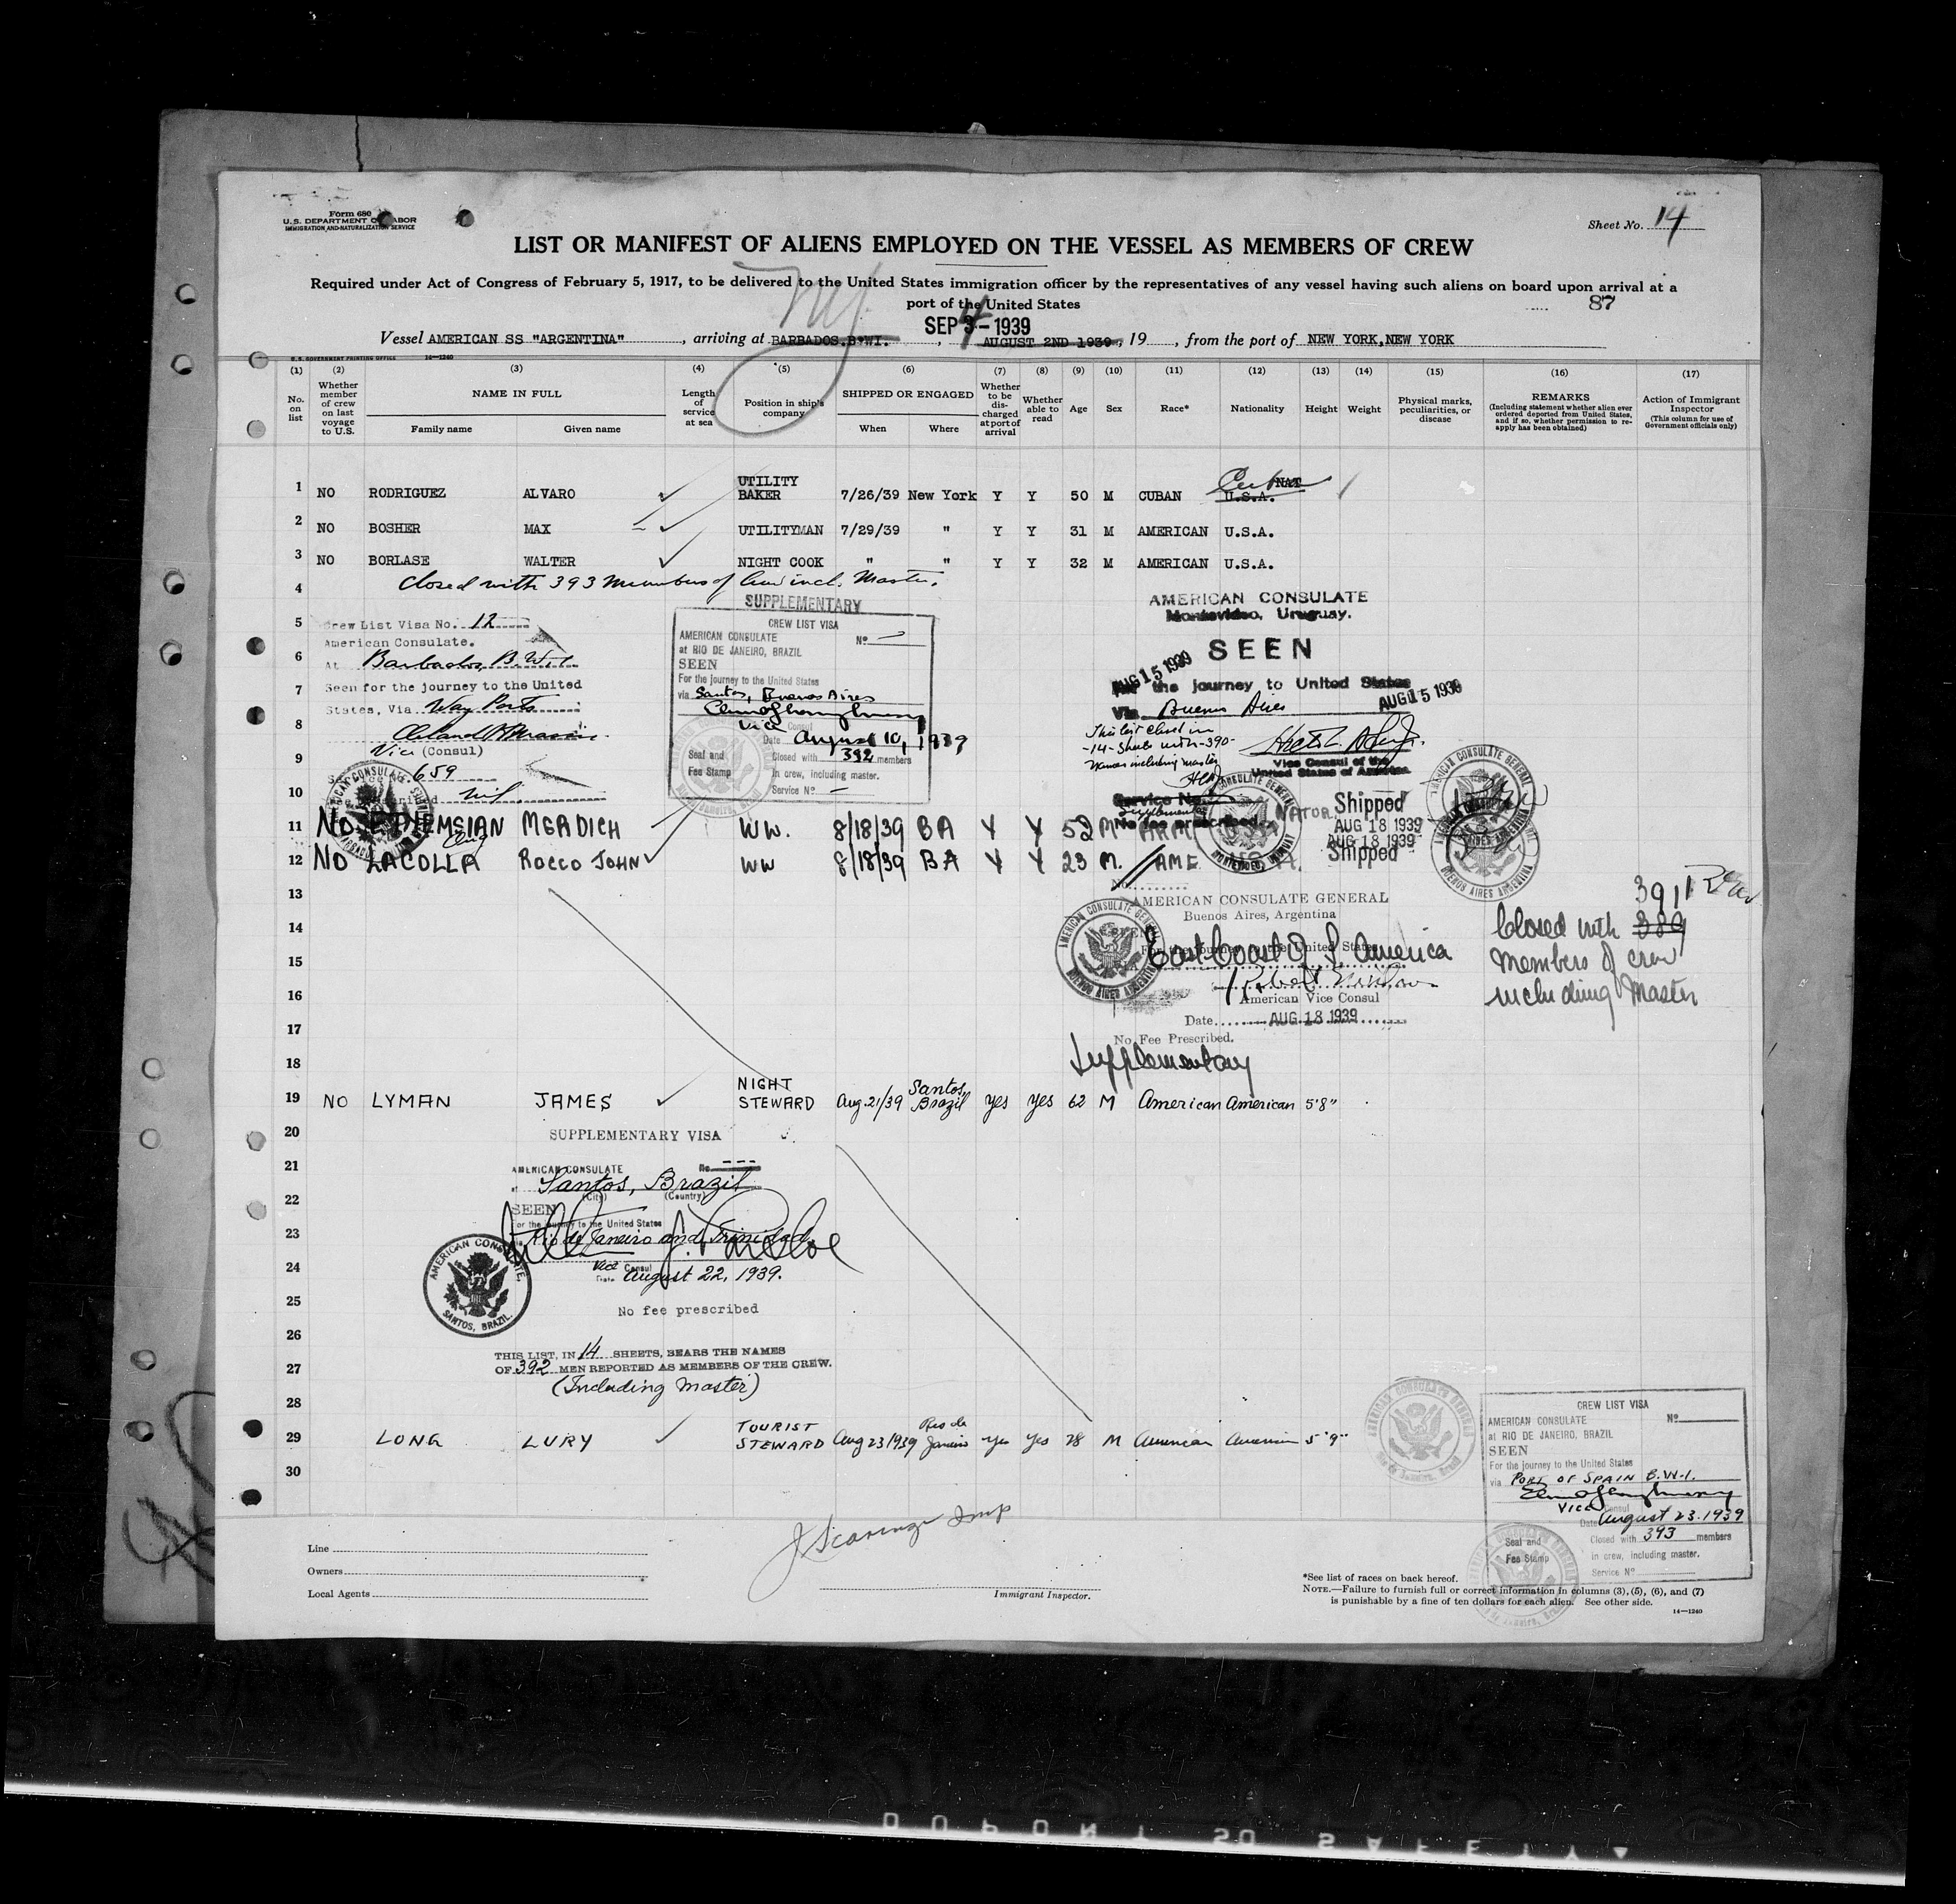 Form 680
U.S. DEPARTMENT OF LABOR
IMMIGRATION AND NATURALIZATION SERVICE
Sheet No. 14
LIST OR MANIFEST OF ALIENS EMPLOYED ON THE VESSEL AS MEMBERS OF CREW
Required under Act of Congress of February 5, 1917, to be delivered to the United States immigration officer by the representatives of any vessel having such aliens on board upon arrival at a
port of the United States
87
NY.
SEP 4 - 1939
Vessel AMERICAN SS "ARGENTINA", arriving at BARBADOS.B.WI., AUGUST 2ND 1939, 19, from the port of NEW YORK,NEW YORK
U.S. GOVERNMENT PRINTING OFFICE 14—1240
(1) (2) (3) (4) (5) (6) (7) (8) (9) (10) (11) (12) (13) (14) (15) (16) (17)
No. on list
Whether member of crew on last voyage to U.S.
NAME IN FULL
Family name Given name
Length of service at sea
Position in ship's company
SHIPPED OR ENGAGED
When Where
Whether to be discharged at port of arrival
Whether able to read
Age Sex Race* Nationality Height Weight
Physical marks, peculiarities, or disease
REMARKS
(Including statement whether alien ever ordered deported from United States, and if so, whether permission to re-apply has been obtained)
Action of Immigrant Inspector
(This column for use of Government officials only)
1 NO RODRIGUEZ ALVARO UTILITY BAKER 7/26/39 New York Y Y 50 M CUBAN NAT U.S.A. Cuba
2 NO BOSHER MAX UTILITYMAN 7/29/39 " Y Y 31 M AMERICAN U.S.A.
3 NO BORLASE WALTER NIGHT COOK " " Y Y 32 M AMERICAN U.S.A.
4 Closed with 393 Members of Crew incl. Master.
5
6
7
8
9
10
Crew List Visa No. 12
American Consulate.
At Barbados, B.W.I.
Seen for the journey to the United
States, Via Way Ports
Vice (Consul)
659
nil
SUPPLEMENTARY
CREW LIST VISA
AMERICAN CONSULATE No —
at RIO DE JANEIRO, BRAZIL
SEEN
For the journey to the United States
via Santos, Buenos Aires
Vice Consul
Date August 10, 1939
Seal and Closed with 392 members
Fee Stamp In crew, including master.
Service No —
AMERICAN CONSULATE
Montevideo, Uruguay.
SEEN
AUG 15 1939
the journey to United States
AUG 15 1939
Via Buenos Aires
This list closed in
-14- Sheets with -390-
Names including master
Vice Consul of the
United States of America
Service No.
Supplementary
No fee prescribed
11 NO MGRDICH WW. 8/18/39 BA Y Y 52 M. Shipped AUG 18 1939
12 NO LACOLLA ROCCO JOHN WW 8/18/39 BA Y Y 23 M. AME Shipped AUG 18 1939
13
14
15
16
17
18
No.
AMERICAN CONSULATE GENERAL
Buenos Aires, Argentina
For the journey to the United States
East Coast of S. America
American Vice Consul
Date AUG 18 1939
No Fee Prescribed.
Supplementary
391
Closed with 389
members of crew
including Master
19 NO LYMAN JAMES NIGHT STEWARD Aug.21/39 Santos, Brazil yes yes 62 M American American 5'8"
20
21
22
23
24
25
26
27
28
SUPPLEMENTARY VISA
AMERICAN CONSULATE No. ---
at Santos, Brazil
(City) (Country)
SEEN
For the journey to the United States
Rio de Janeiro and Trinidad
Vice Consul
Date August 22, 1939.
AMERICAN CONSULATE, SANTOS, BRAZIL.
No fee prescribed
THIS LIST, IN 14 SHEETS, BEARS THE NAMES
OF 392 MEN REPORTED AS MEMBERS OF THE CREW.
(Including Master)
29 LONG LURY TOURIST STEWARD Aug 23 1939 Rio de Janeiro yes yes 28 M American American 5'9"
30
CREW LIST VISA
AMERICAN CONSULATE No
at RIO DE JANEIRO, BRAZIL
SEEN
For the journey to the United States
via PORT OF SPAIN B.W.I.
VICE Consul
Date August 23. 1939
Closed with 393 members
Seal and in crew, including master.
Fee Stamp Service No
Line
Owners
Local Agents
Immigrant Inspector.
*See list of races on back hereof.
NOTE.—Failure to furnish full or correct information in columns (3), (5), (6), and (7)
is punishable by a fine of ten dollars for each alien. See other side.
14—1240
DUPONT SO SAFETY